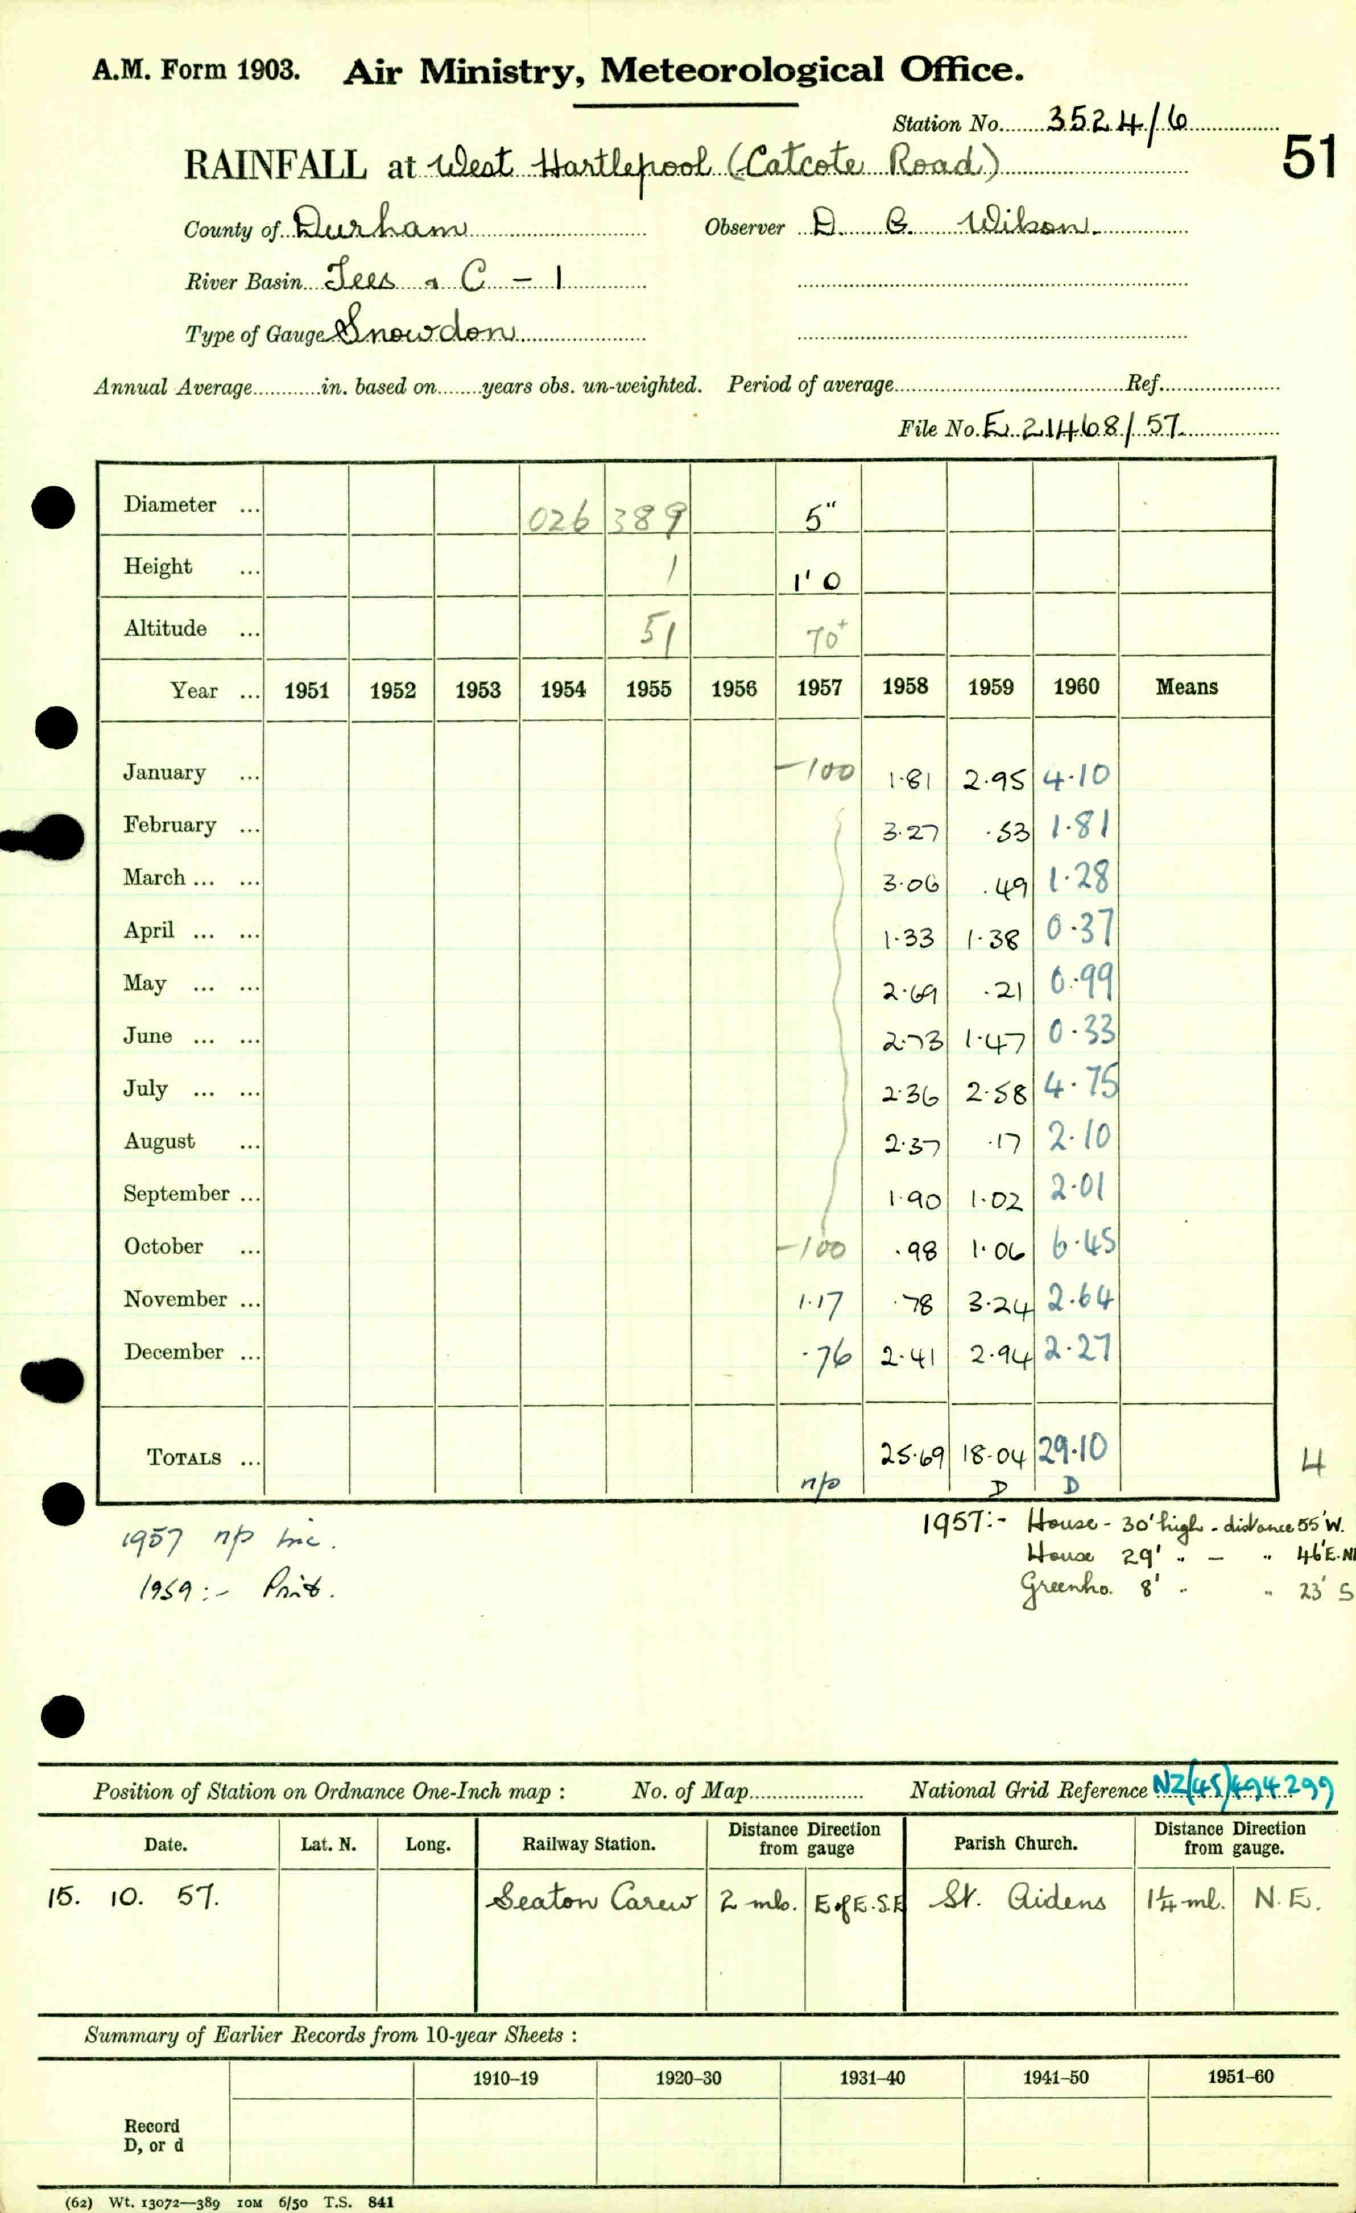 A.M. Form 1903. Air Ministry, Meteorological Office.
Station No. 3524/6
51
RAINFALL at West Hartlepool (Catcote Road)
County of Durham Observer D. G. Wilson.
River Basin Tees & C - 1
Type of Gauge Snowdon
Annual Average............in. based on........years obs. un-weighted. Period of average.................Ref.................
File No. E 21468/57.
Diameter ... 026 389 5"
Height ... 1 1' 0
Altitude ... 51 70+
Year ... 1951 1952 1953 1954 1955 1956 1957 1958 1959 1960 Means
January ... -100 1.81 2.95 4.10
February ... 3.27 .53 1.81
March ... ... 3.06 .49 1.28
April ... ... 1.33 1.38 0.37
May ... ... 2.69 .21 0.99
June ... ... 2.73 1.47 0.33
July ... ... 2.36 2.58 4.75
August ... 2.37 .17 2.10
September ... 1.90 1.02 2.01
October ... -100 .98 1.06 6.45
November ... 1.17 .78 3.24 2.64
December ... .76 2.41 2.94 2.27
TOTALS ... 25.69 18.04 29.10 4
n/p D D
1957 n/p inc.
1959:- Print.
1957:- House - 30' high - distance 55' W.
House 29' " - " 46' E.N
Greenho. 8' " " 23' S
Position of Station on Ordnance One-Inch map : No. of Map.................... National Grid Reference NZ(45)494299
Date. Lat. N. Long. Railway Station. Distance Direction from gauge Parish Church. Distance Direction from gauge.
15. 10. 57. Seaton Carew 2 mls. E of E.S.E St. Aidens 1¼ ml. N.E.
Summary of Earlier Records from 10-year Sheets :
1910–19 1920–30 1931–40 1941–50 1951–60
Record
D, or d
(62) Wt. 13072—389 10M 6/50 T.S. 841